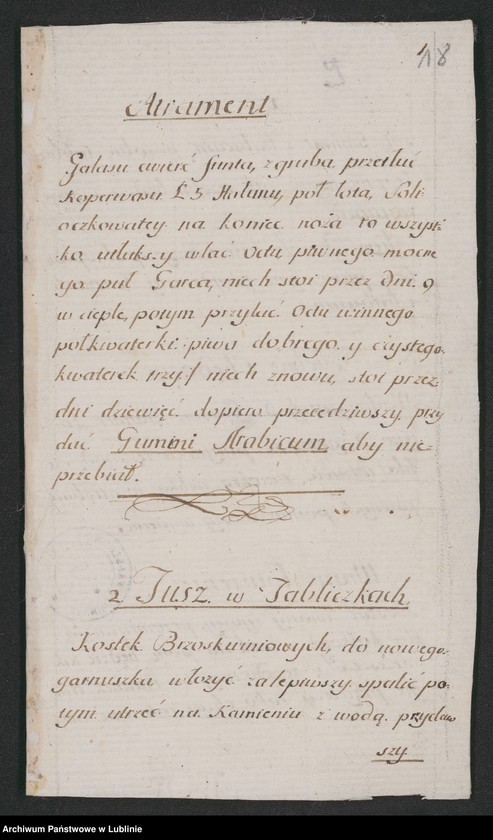 48
Atrament
Galasu cwierć funta, zgruba przetłuc
Koperwasu Ł 5 Hałunu, poł łota, Soli
oczkowatey na koniec noża to wszyst-
ko utłukszy wlać Octu piwnego mocne
go puł Garca, niech stoi przez dni 9
w cieple, potym przylać Octu winnego
połkwaterki piwa dobrego y czystego
kwaterek trzy / niech znowu, stoi przez
dni dziewięć dopiero przecedziwszy przy
dać Gummi Arabicum aby nie-
przebiał.
2 Tusz w Tabliczkach
Kostek Brzoskwiniowych, do nowego
garnuszka włożyć zalepiwszy spalić po-
tym utrzeć na Kamieniu z wodą przydaw
szy
Archiwum Państwowe w Lublinie